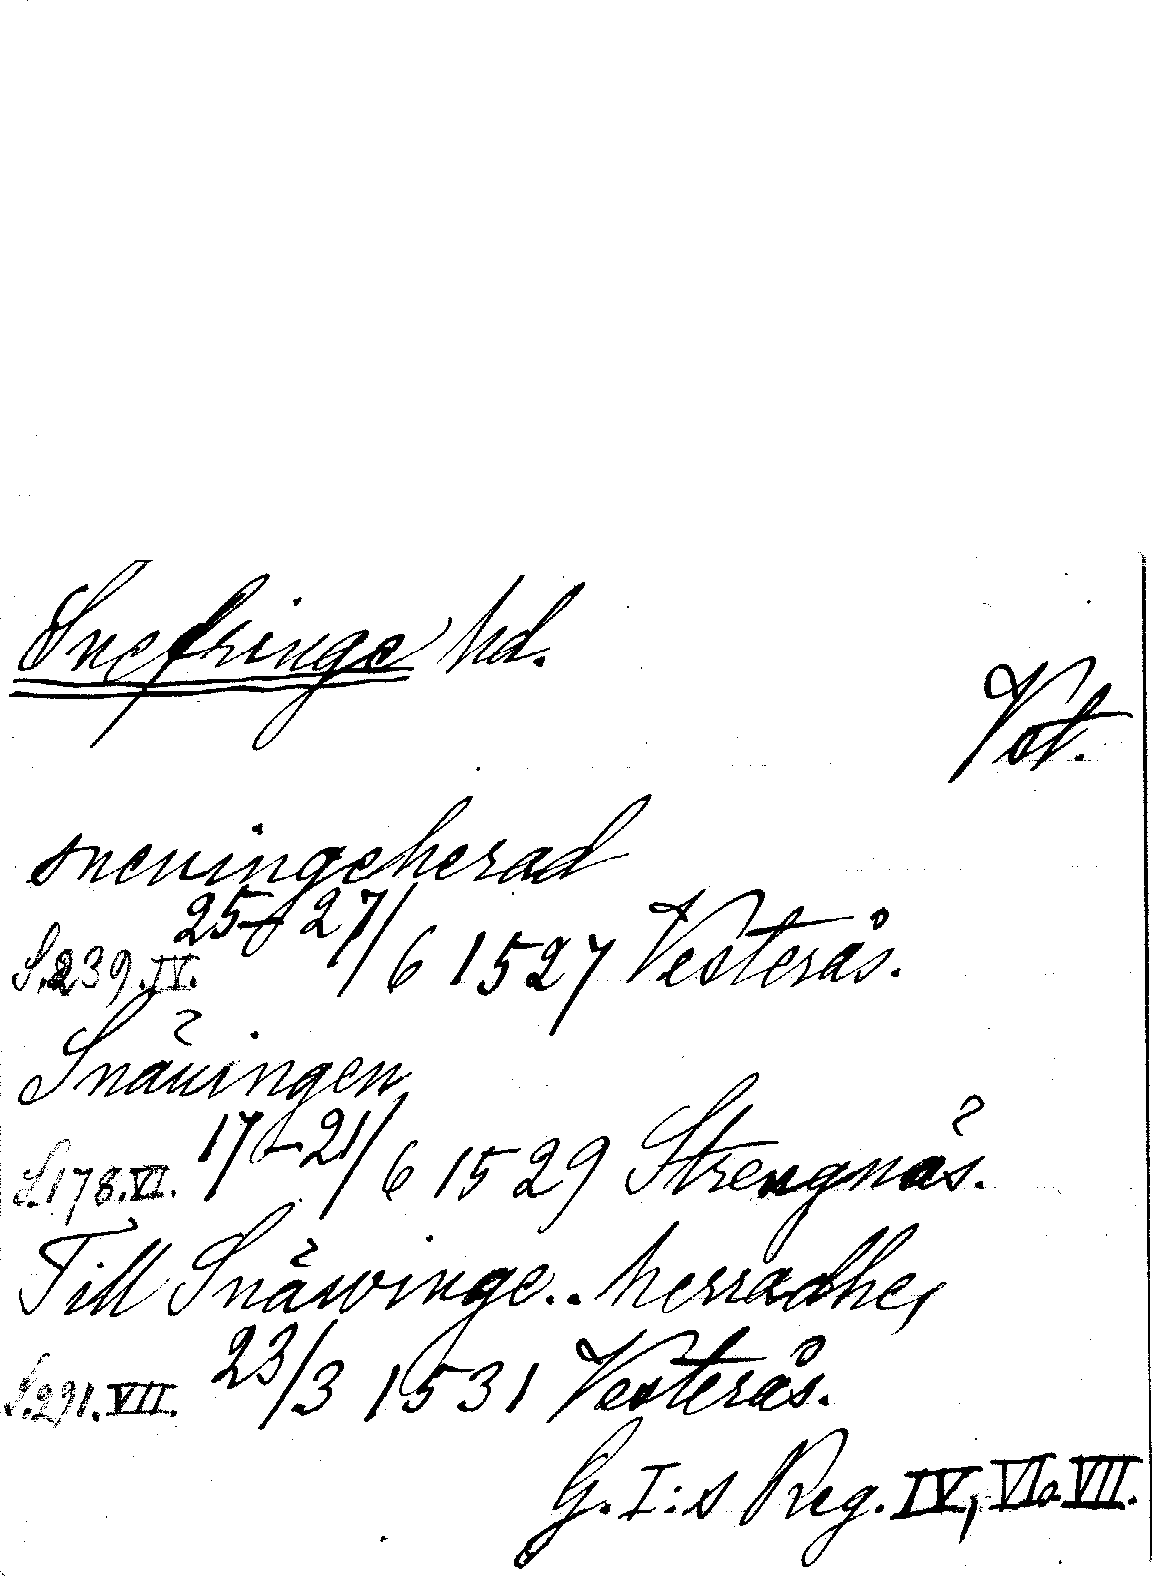 Snefringe hd.
Vst.
sneuingeherad
S.239.IV. 25-27/6 1527 Vesterås.
Snäuingen
S.178.VI. 17-21/6 1529 Strengnäs.
Till Snäwinge..herradhe,
S.291.VII. 23/3 1531 Vesterås.
G.I:s Reg. IV, VI o VII.